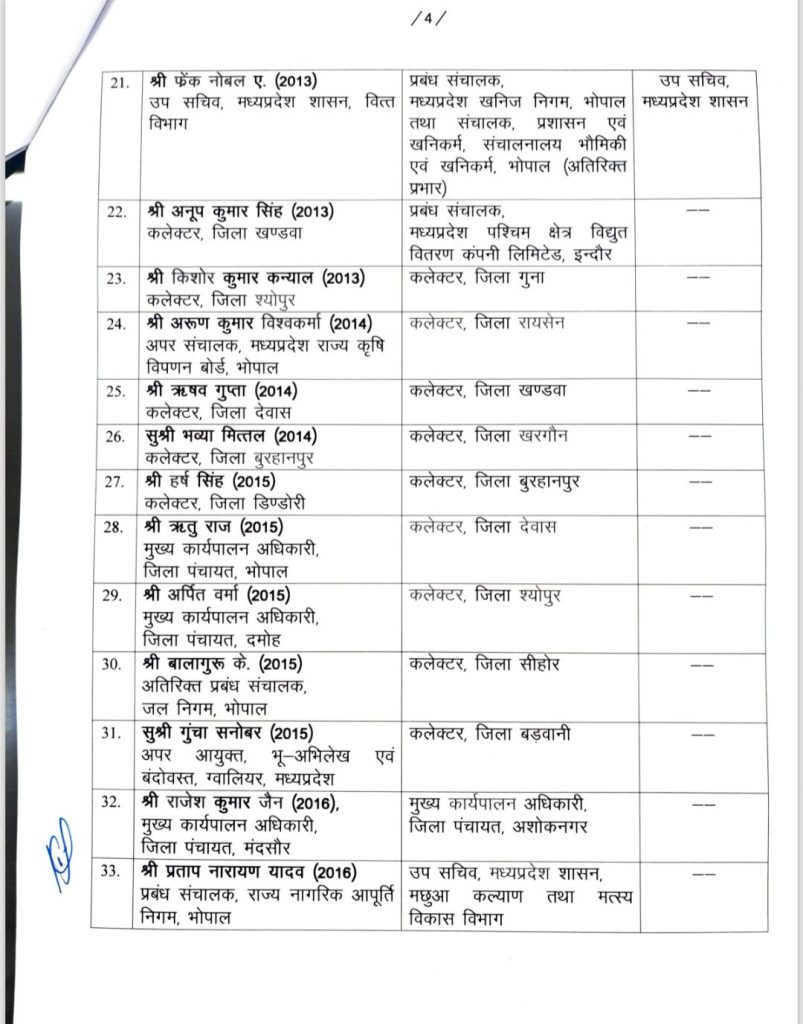 /4/
21. श्री फेंक नोबल ए. (2013)
उप सचिव, मध्यप्रदेश शासन, वित्त
विभाग
प्रबंध संचालक,
मध्यप्रदेश खनिज निगम, भोपाल
तथा संचालक, प्रशासन एवं
खनिकर्म, संचालनालय भौमिकी
एवं खनिकर्म, भोपाल (अतिरिक्त
प्रभार)
उप सचिव,
मध्यप्रदेश शासन
22. श्री अनूप कुमार सिंह (2013)
कलेक्टर, जिला खण्डवा
प्रबंध संचालक,
मध्यप्रदेश पश्चिम क्षेत्र विद्युत
वितरण कंपनी लिमिटेड, इन्दौर
——
23. श्री किशोर कुमार कन्याल (2013)
कलेक्टर, जिला श्योपुर
कलेक्टर, जिला गुना
——
24. श्री अरूण कुमार विश्वकर्मा (2014)
अपर संचालक, मध्यप्रदेश राज्य कृषि
विपणन बोर्ड, भोपाल
कलेक्टर, जिला रायसेन
——
25. श्री ऋषव गुप्ता (2014)
कलेक्टर, जिला देवास
कलेक्टर, जिला खण्डवा
——
26. सुश्री भव्या मित्तल (2014)
कलेक्टर, जिला बुरहानपुर
कलेक्टर, जिला खरगौन
——
27. श्री हर्ष सिंह (2015)
कलेक्टर, जिला डिण्डोरी
कलेक्टर, जिला बुरहानपुर
——
28. श्री ऋतु राज (2015)
मुख्य कार्यपालन अधिकारी,
जिला पंचायत, भोपाल
कलेक्टर, जिला देवास
——
29. श्री अर्पित वर्मा (2015)
मुख्य कार्यपालन अधिकारी,
जिला पंचायत, दमोह
कलेक्टर, जिला श्योपुर
——
30. श्री बालागुरू के. (2015)
अतिरिक्त प्रबंध संचालक,
जल निगम, भोपाल
कलेक्टर, जिला सीहोर
——
31. सुश्री गुंचा सनोबर (2015)
अपर आयुक्त, भू–अभिलेख एवं
बंदोवस्त, ग्वालियर, मध्यप्रदेश
कलेक्टर, जिला बड़वानी
——
32. श्री राजेश कुमार जैन (2016),
मुख्य कार्यपालन अधिकारी,
जिला पंचायत, मंदसौर
मुख्य कार्यपालन अधिकारी,
जिला पंचायत, अशोकनगर
——
33. श्री प्रताप नारायण यादव (2016)
प्रबंध संचालक, राज्य नागरिक आपूर्ति
निगम, भोपाल
उप सचिव, मध्यप्रदेश शासन,
मछुआ कल्याण तथा मत्स्य
विकास विभाग
——